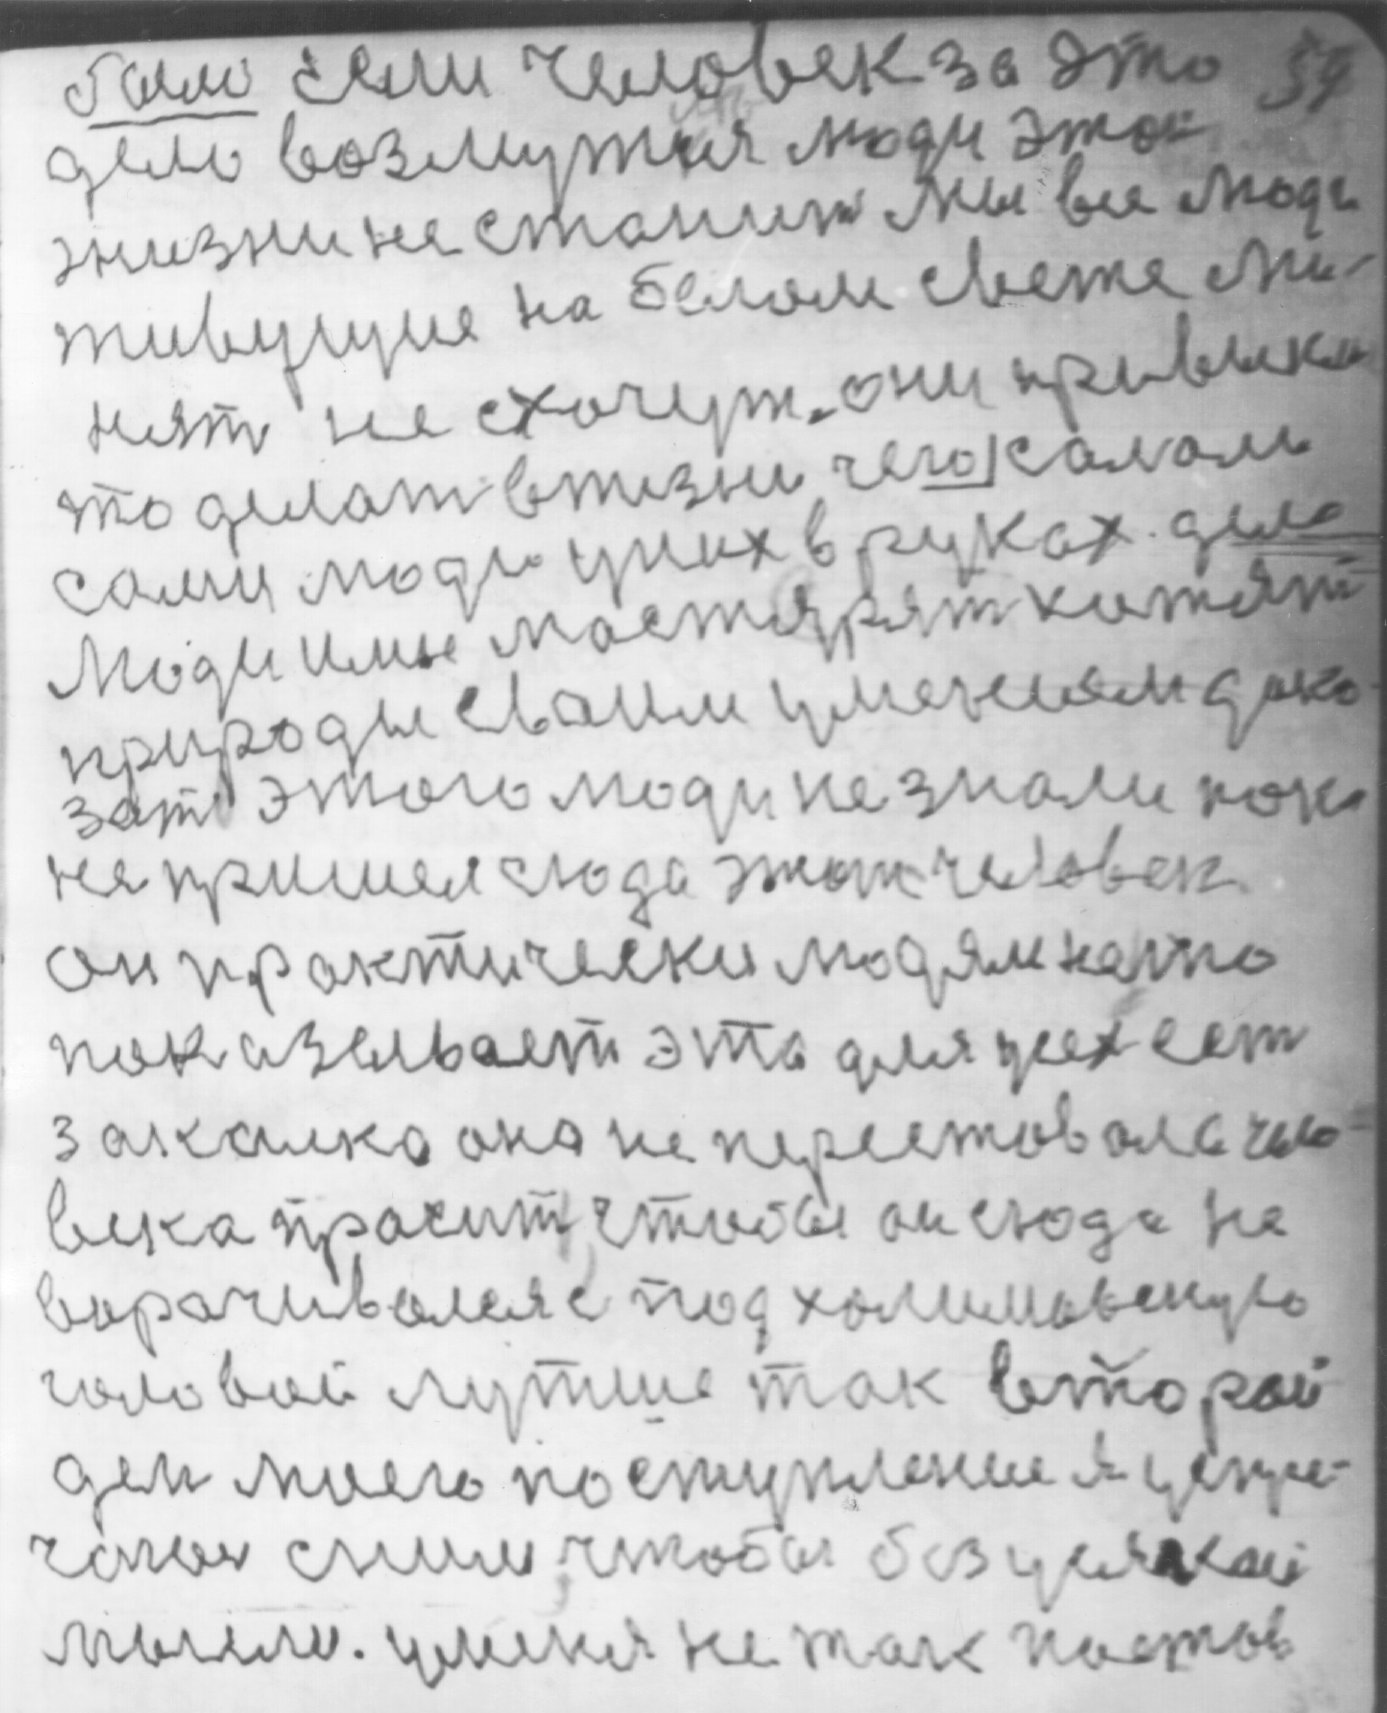 было если человек за это 59
дело возмутця люди этой
жизни не станит мы все люди
живущие на белом свете ми-
нят не схочут. они привыкли
то делат в жизни чего самам
сами люди у них в руках дело
Люди имы мастярят хотят
природы своим умением дока-
зат этого люди не знали пока
не пришел сюда этот человек.
он практически людям на что
показывает эта для усех ест
закалка она не перестовала чело-
века прасит чтобы он сюда не
ворочивалеяс под холимовскую
головой лутше так второй
ден моего поступление я устре-
чаюсь с ним чтобы без усякой
мысли. у меня не так постов